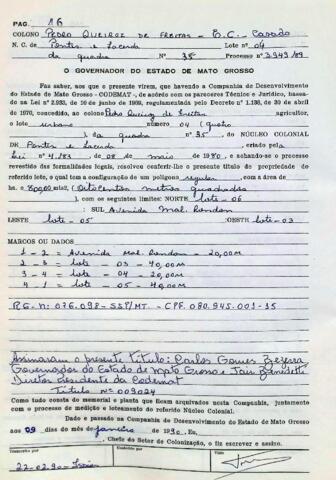 PAG. 16
COLONO Pedro Queiroz de Freitas - E.C. Casado
N. C. de Pontes e Lacerda Lote nº 04
da quadra nº 35 Processo nº 3949/89
O GOVERNADOR DO ESTADO DE MATO GROSSO
Faz saber, aos que a presente virem, que havendo a Companhia de Desenvolvimento
do Estado de Mato Grosso - CODEMAT -, de acôrdo com os pareceres Técnico e Jurídico, basea-
do na Lei nº 2.933, de 10 de junho de 1969, regulamentada pelo Decreto nº 1.138, de 30 de abril
de 1970, concedido, ao colono Pedro Queiroz de Freitas agricultor,
o lote urbano número 04 (quatro
), da quadra nº 35, do NÚCLEO COLONIAL
DE Pontes e Lacerda, criado pela
Lei nº 4.184, de 08 de maio de 1980, e achando-se o processo
revestido das formalidades legais, resolveu conferir-lhe o presente título de propriedade do
referido lote, o qual tem a configuração de um polígono regular, com a área de
800,00 (Oitocentos metros quadrados
), com os seguintes limites: NORTE lote - 06
: SUL Avenida Mal. Rondon
LESTE lote - 05 OESTE lote - 03
MARCOS OU DADOS
1 - 2 = Avenida Mal. Rondon - 20,00M
2 - 3 = lote - 03 - 40,00M
3 - 4 = lote - 06 - 20,00M
4 - 1 = lote - 05 - 40,00M
R.G. nº: 076.098 - SSP/MT - CPF. 080.945.001-35
Assinaram o presente título: Carlos Gomes Bezerra
Governador do Estado de Mato Grosso e Jair Benedetti
Diretor Presidente da Codemat
Título Nº 009024
Como tudo consta do memorial e planta que ficam arquivados nesta Companhia, juntamente
com o processo de medição e loteamento do referido Núcleo Colonial.
Dado e passado na Companhia de Desenvolvimento do Estado de Mato Grosso
aos 09 dias do mês de janeiro de 1990. Eu,
, Chefe do Setor de Colonização, o fiz escrever e assino.
Transcrito por
Conferido por
Visto
22-02-90